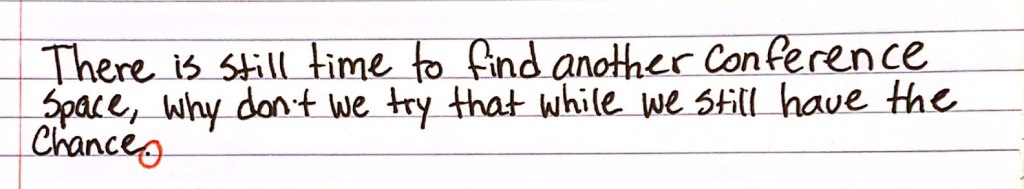 There is still time to find another conference
space, why don't we try that while we still have the
chance.